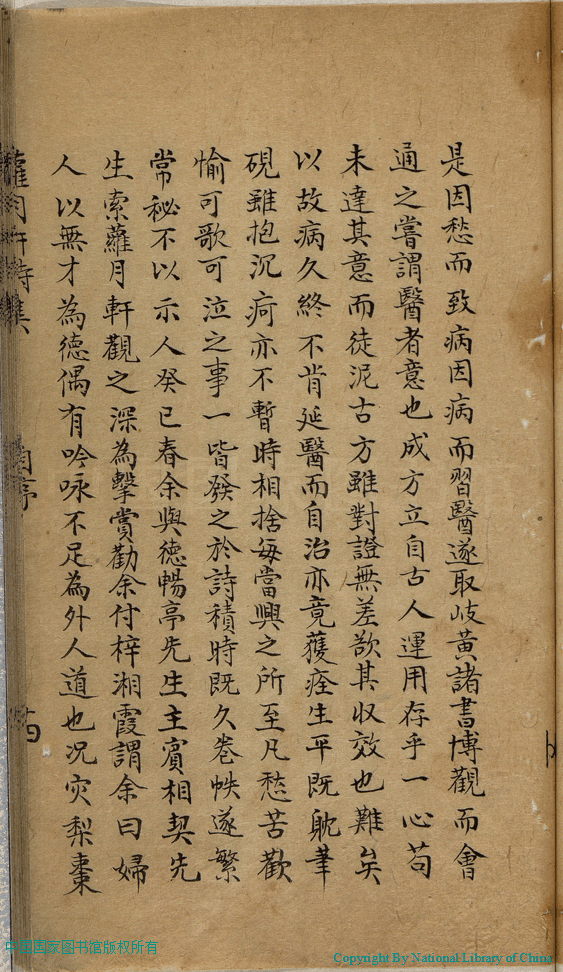 是因愁而致病因病而習醫遂取岐黃諸書博觀而會
通之嘗謂醫者意也成方立自古人運用存乎一心苟
未達其意而徒泥古方雖對證無差欲其收效也難矣
以故病久終不肯延醫而自治亦竟獲痊生平既躭筆
硯雖抱沉疴亦不暫時相捨每當興之所至凡愁苦歡
愉可歌可泣之事一皆發之於詩積時既久卷帙遂繁
常秘不以示人癸巳春余與德暢亭先生主賓相契先
生索蘿月軒觀之深為擊賞勸余付梓湘霞謂余曰婦
人以無才為德偶有吟咏不足為外人道也况灾梨棗
蘿月軒詩集
中国国家图书馆版权所有
Copyright By National Library of China